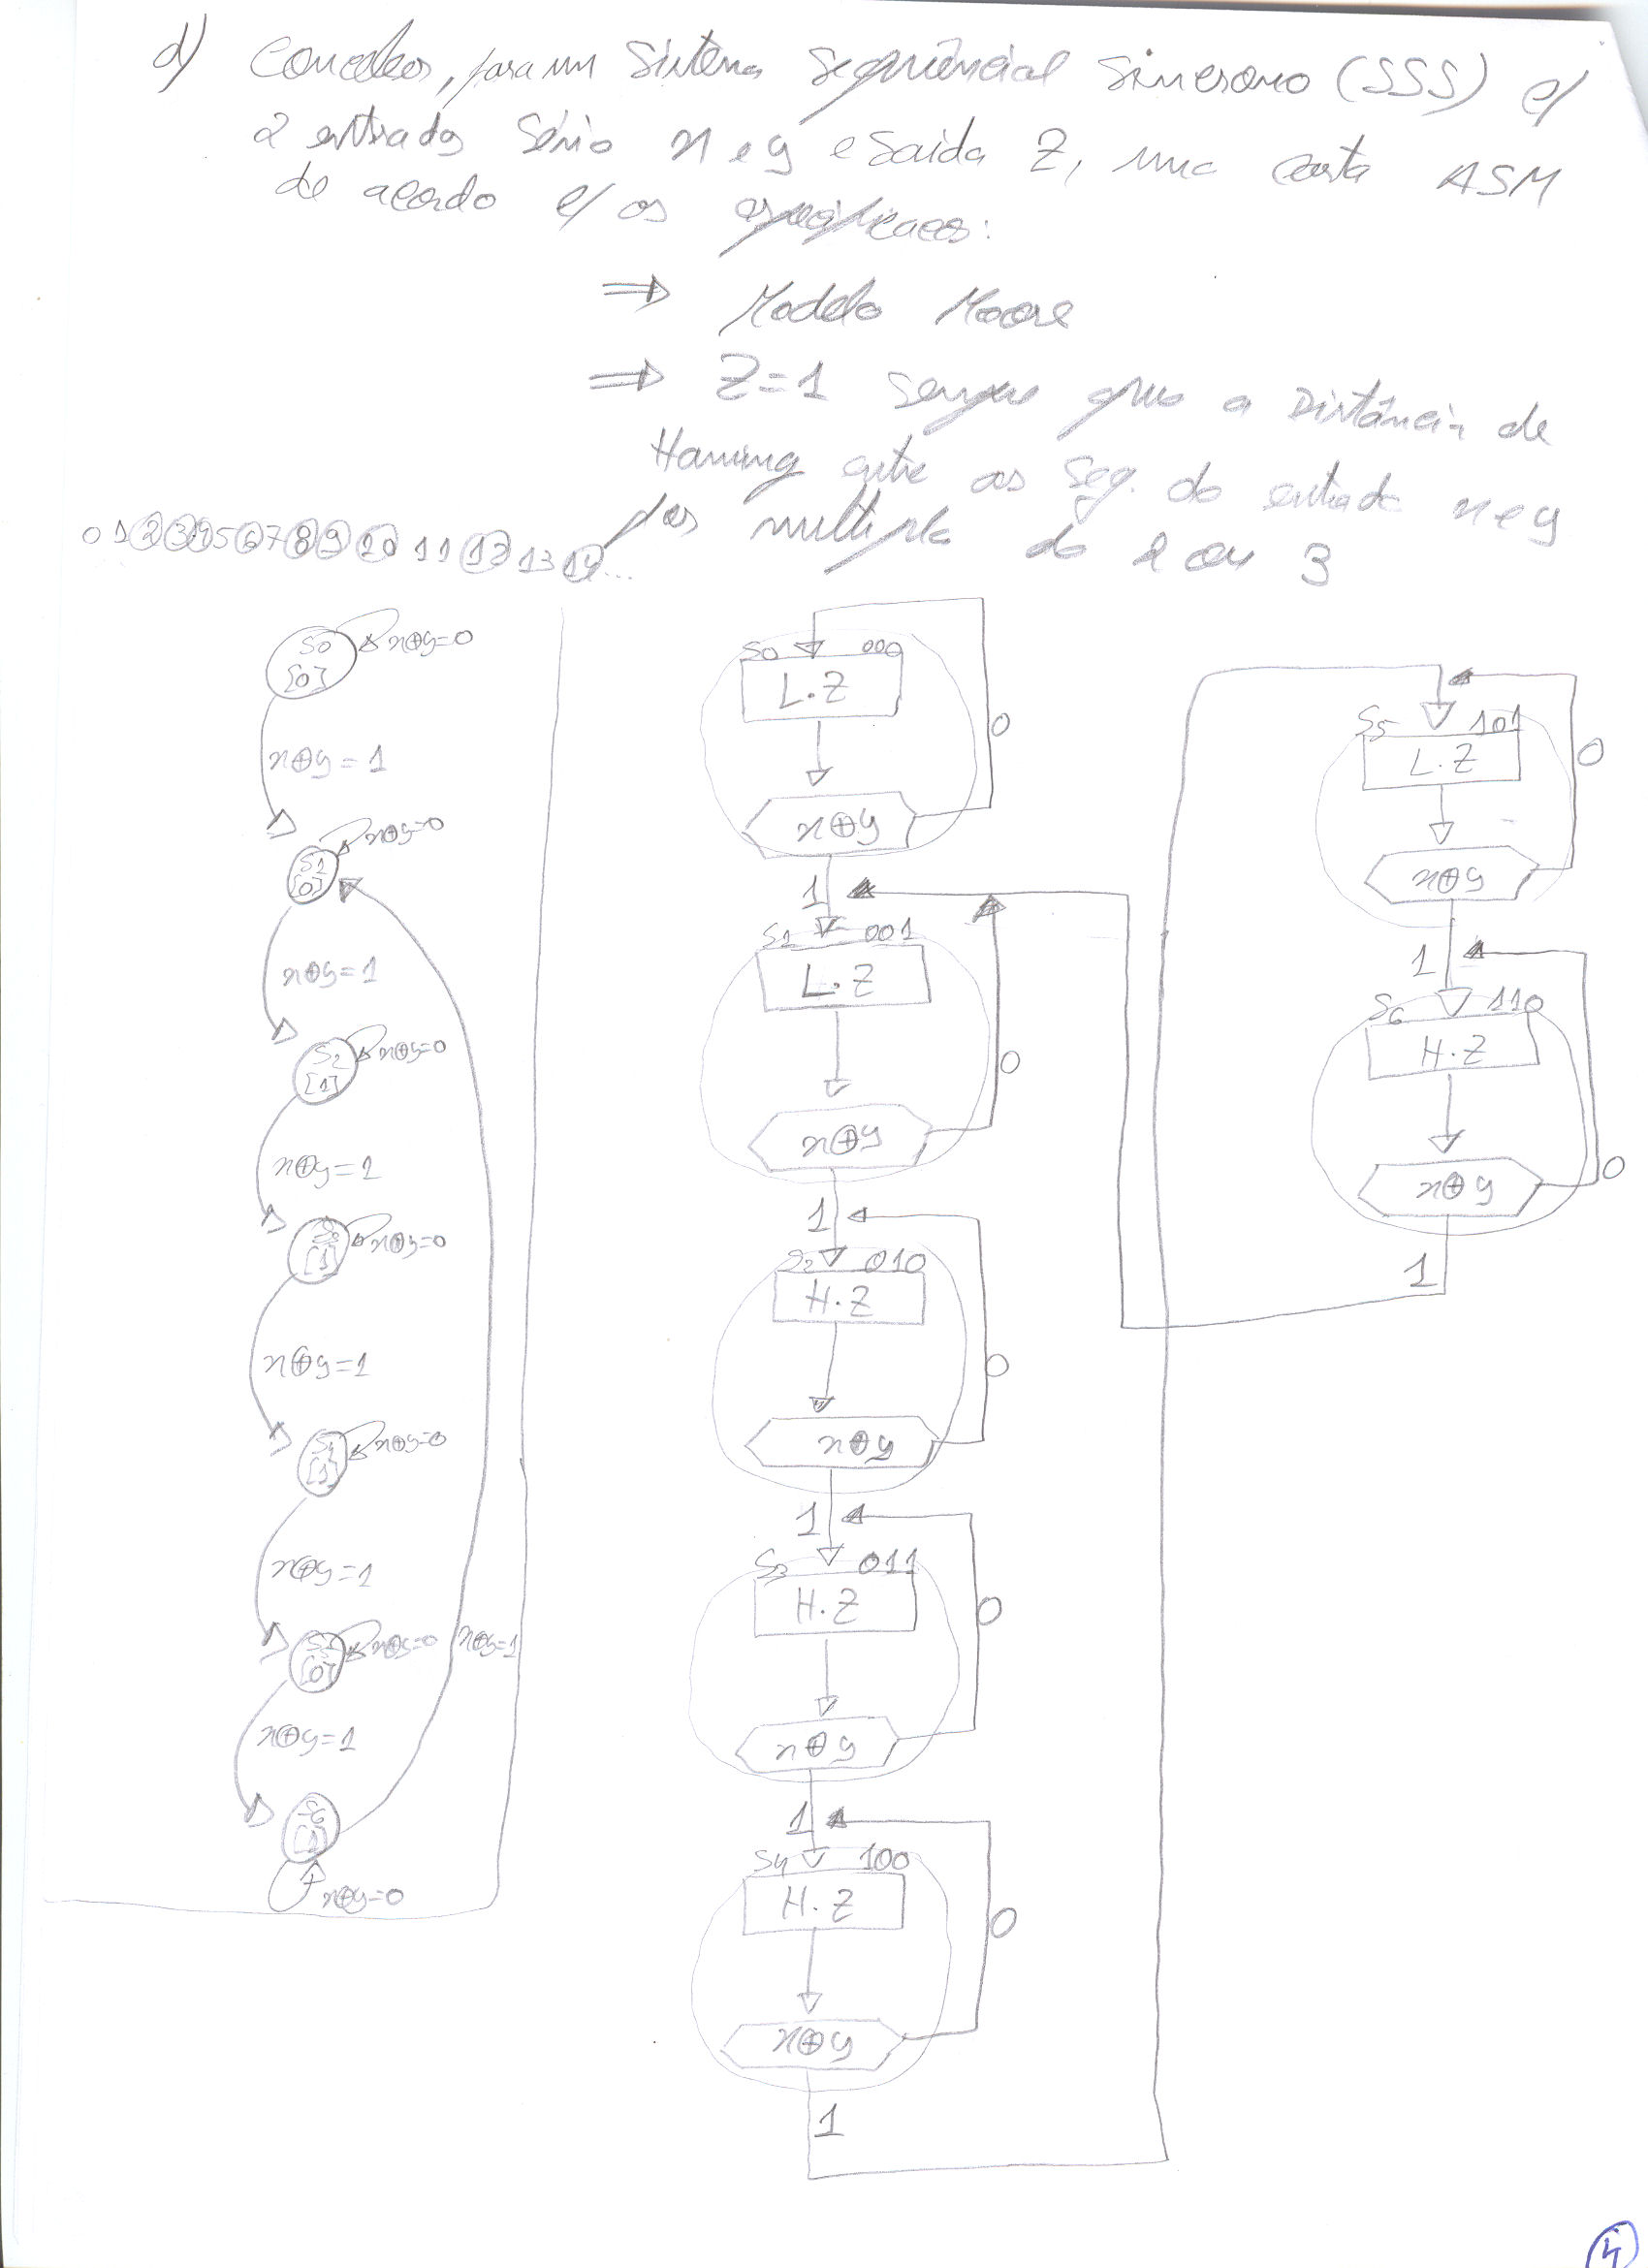 d) Concebas, para um Sistema Sequêncial Sincrono (SSS) c/
2 entradas Série x e y e Saida Z, uma carta ASM
de acordo c/ as especificacoes:
⇒ Modelo Moore
⇒ Z=1 Sempre que a Distância de
Haming entre as Seq. de entrada x e y
for multiplo de 2 ou 3
0 1 2 3 4 5 6 7 8 9 10 11 12 13 14...
S0
[0]
x⊕y=0
x⊕y=1
S1
[0]
x⊕y=0
x⊕y=1
S2
[1]
x⊕y=0
x⊕y=1
S3
[1]
x⊕y=0
x⊕y=1
S4
[1]
x⊕y=0
x⊕y=1
S5
[0]
x⊕y=0
x⊕y=1
x⊕y=1
S6
[1]
x⊕y=0
S0 000
L.Z
0
x⊕y
1
S1 001
L.Z
0
x⊕y
1
S2 010
H.Z
0
x⊕y
1
S3 011
H.Z
0
x⊕y
1
S4 100
H.Z
0
x⊕y
1
S5 101
L.Z
0
x⊕y
1
S6 110
H.Z
0
x⊕y
1
4